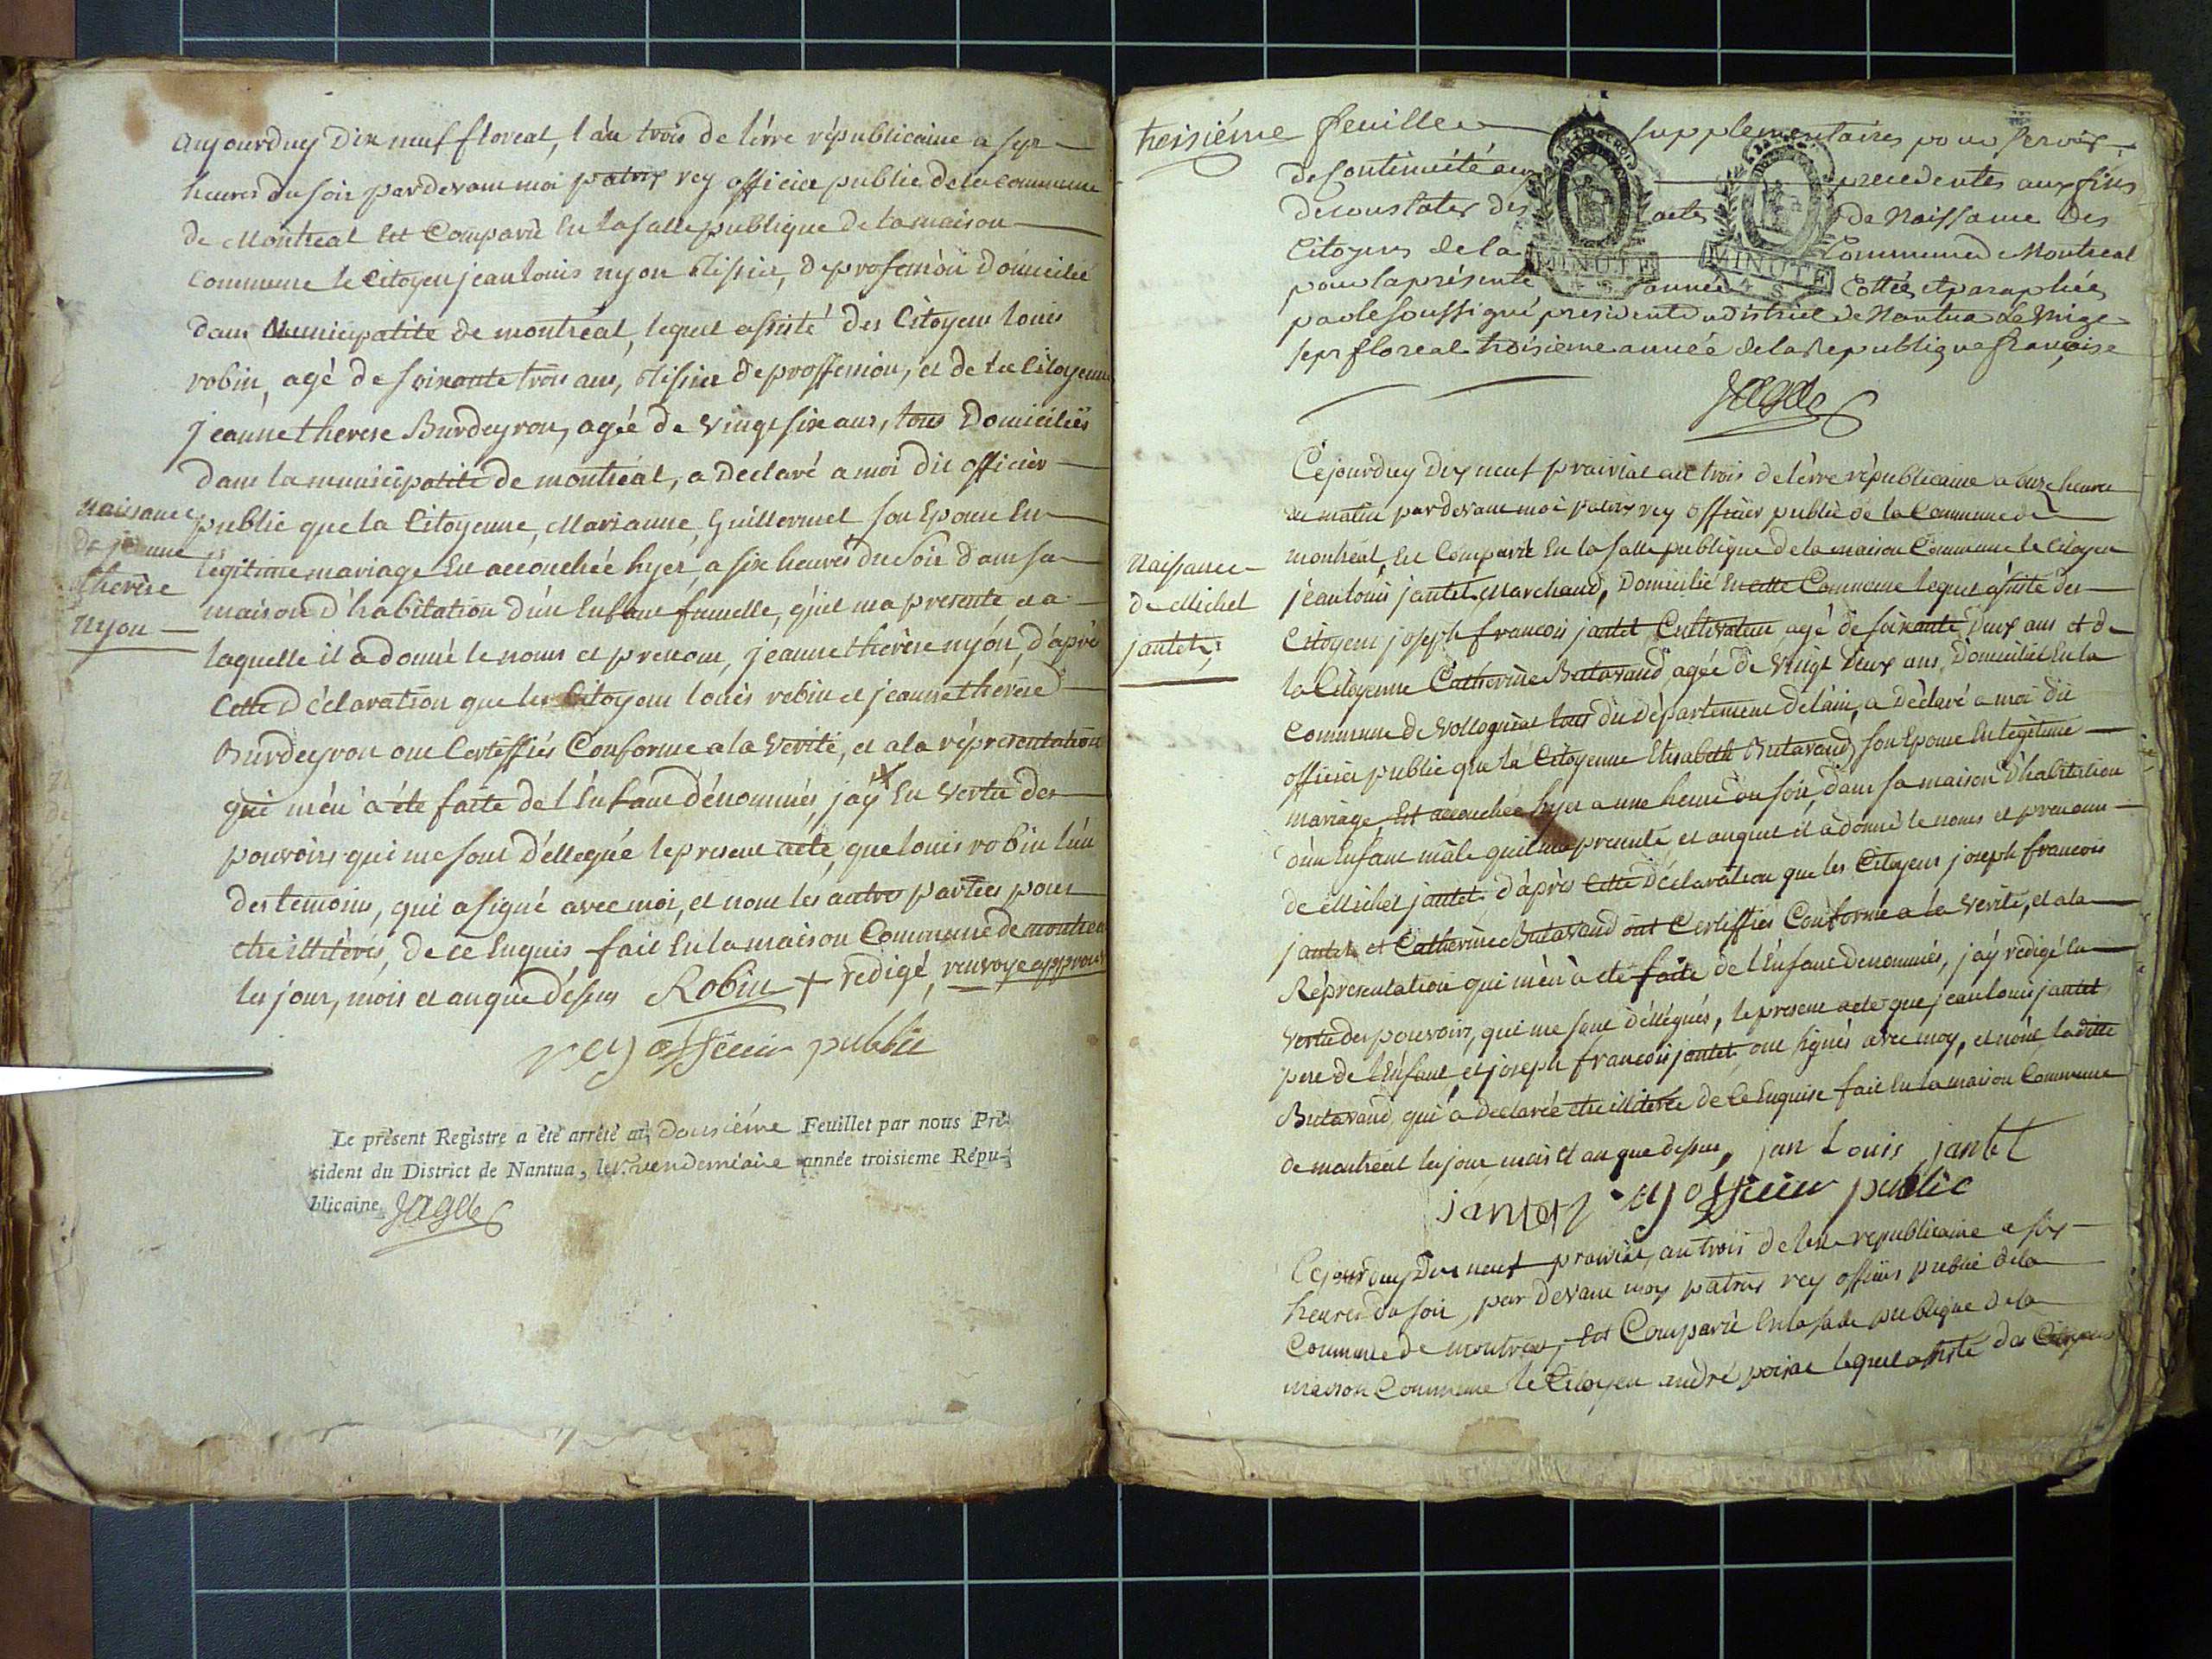 Aujourduy Dix neuf floreal, l'an trois de lérre républicaine a sept
heures du soir pardevant moi patrix rey officier public de la commune
de Montreal Est Comparu En la salle publique de la maison
commune le Citoyen jean louis nyon Tissier, de profession domicilié
dans Municipalité de montréal, lequel assisté des Citoyens louis
robin, agé de soixante trois ans, Tissier de proffession, et de la Citoyenne
jeanne therese Burdeyron, agée de vingt six ans, tous Domiciliés
dans la municipalité de montréal, a Declaré a moi dit officier
public que la Citoyenne, Marianne, Guillermet son Epouse En
légitime mariage Est accouchée hyer, a six heures du soir dans sa
maison d'habitation d'un Enfant femelle, qu'il ma presenté et a
laquelle il a donné le noms et prenom, jeanne thérèse nyon, d'après
Cette Déclaration que les Citoyens louis robin et jeanne therese
Burdeyron ont Certiffiés Conforme a la Verité, et a la répresentation
qui m'en a été faite de l'Enfant dénommés, j'ay + En Vertu des
pouvoirs qui me sont déllegué le present acte, que louis robin l'un
des temoins, qui a signé avec moi, et nom les autre parties pour
etre illitérés, de ce Enquis fait En la maison Commune de montreal
les jour, mois et an que déssus Robin + redigé, renvoye approuvé
rey officier public
Naissance
De jeanne
therèse
Nyon
Le présent Registre a été arrêté au Dousiéme Feuillet par nous Pré-
sident du District de Nantua, le 1er vendemiaire année troisieme Répu-
blicaine. Jagot
troisiéme feuille supplementaires pour servir
de Continuité aux precedentes aux fins
de constater des actes de Naissance des
Citoyens de la Commune de Montreal
pour la présente année Cottée et paraphée
par le soussigné president du district de Nantua Le Vingt
sept floreal troisieme année de la Republique française
Jagot
MINUTE
MINUTE
Cejourduy Dix neuf prairial an trois de lérre républicaine a onze heures
du matin pardevant moi patrix rey officier public de la Commune de
montréal Est Comparu En la salle publique de la maison Commune le Citoyen
jean louis jantet Marchand, Domicilié En cette Commune lequel assisté des
Citoyens joseph francois jantet Cultivateur agé de soixante deux ans et de
la Citoyenne Catherine Butavand agée de vingt deux ans, Domiciliés En la
Commune de Vollognat tous du Département de lain, a Déclaré a moi dit
officier public que la Citoyenne Elisabeth Butavand son Epouse En légitime
mariage Est accouchée hyer a une heure du soir, dans sa maison d'habitation
d'un Enfant mâle qu'il ma presenté et auquel il a donné le noms et prenom
de Michel jantet d'après Cette Déclaration que les Citoyens joseph francois
jantet et Catherine Butavand ont Certiffiés Conforme a la Verité, et a la
Répresentation qui m'en a été faite de l'Enfant denommés, j'ay redigé En
Vertu des pouvoirs, qui me sont déllégués, le present acte que jean louis jantet
pere de l'Enfant, et joseph francois jantet ont signés avec moy, et nom ladite
Butavand qui a declarée etre illiterée de ce Enquise fait En la maison Commune
de montréal les jour mois et an que dessus, jan Louis jantet
jantet rey officier public
Naissance
de Michel
jantet
Cejourduy Dix neuf prairial, an trois de lére republicaine a six
heures du soir, par devant moy patrix rey officier public de la
Commune de montreal, Est Comparu En la salle publique de la
maison Commune le Citoyen andré lequel assisté des Citoyens